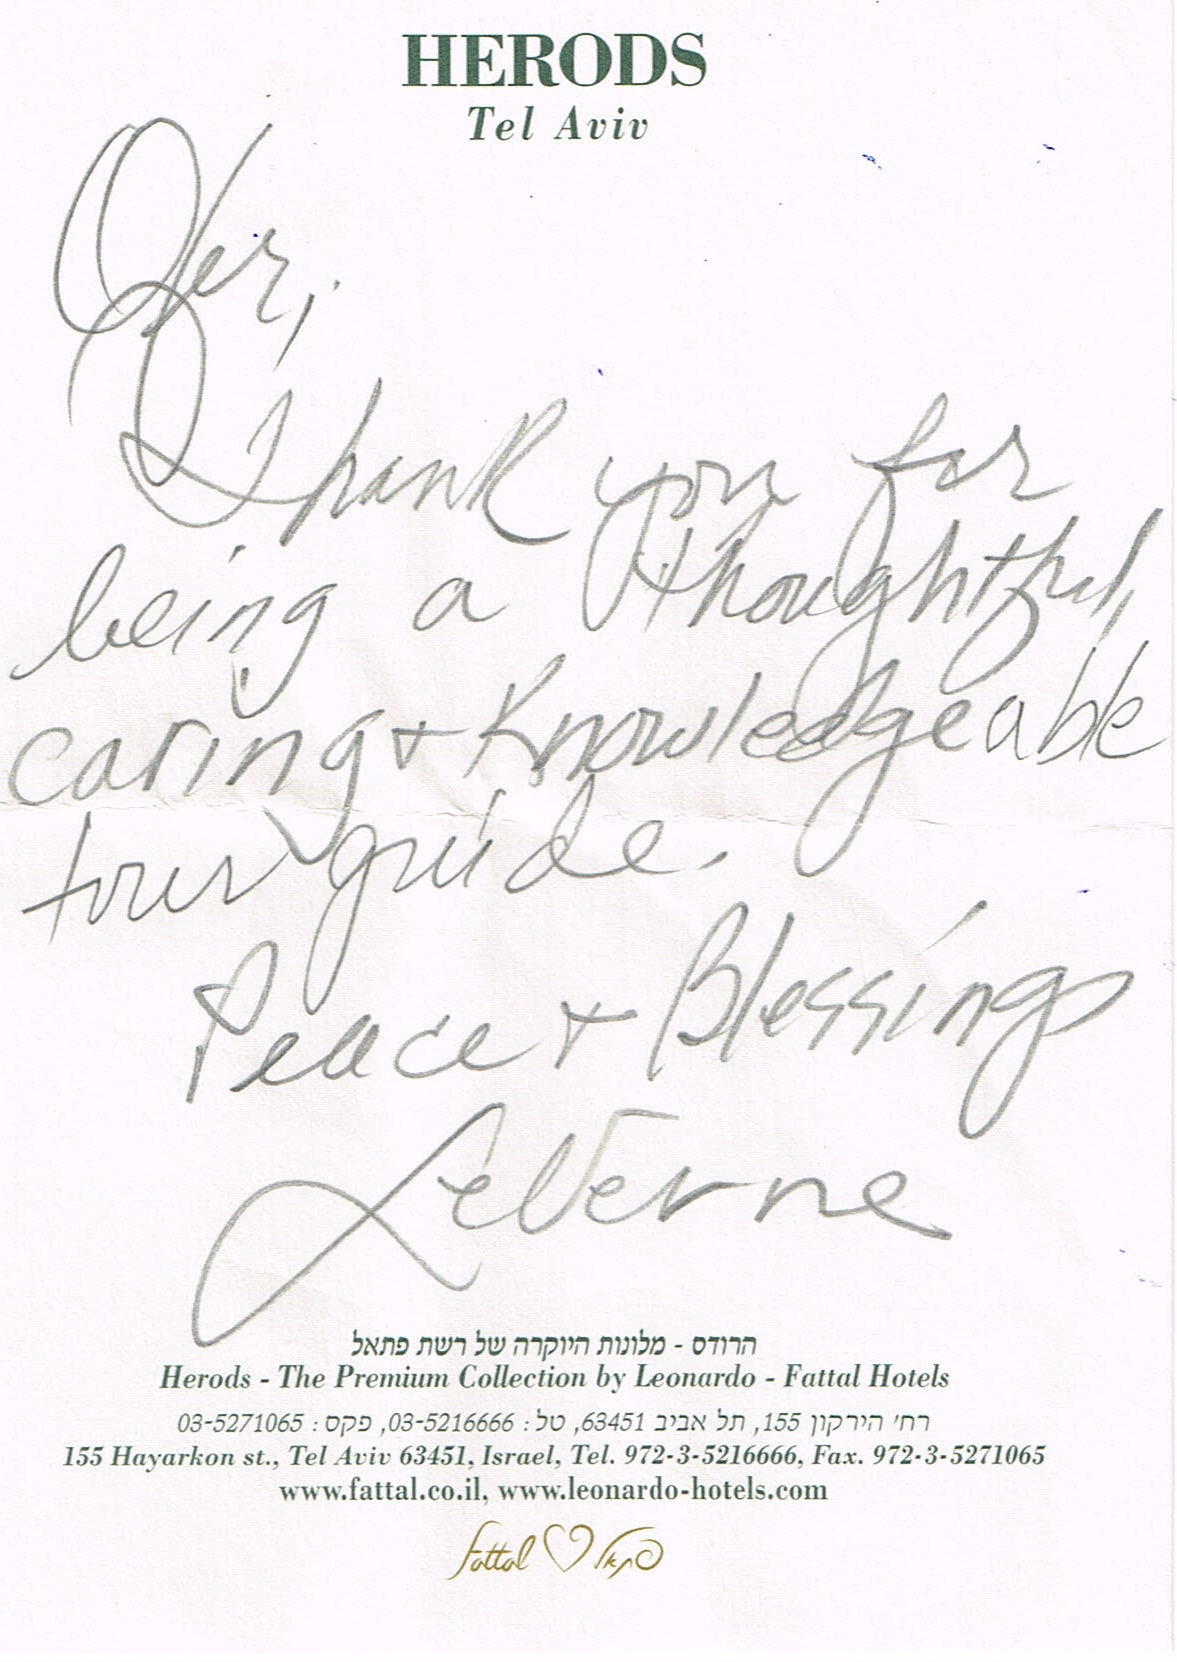 HERODS
Tel Aviv
Ofer,
Thank you for
being a thoughtful,
caring + Knowledgeable
tour guide.
Peace + Blessings
LeVerne
הרודס - מלונות היוקרה של רשת פתאל
Herods - The Premium Collection by Leonardo - Fattal Hotels
רח' הירקון 155, תל אביב 63451, טל : 03-5216666, פקס : 03-5271065
155 Hayarkon st., Tel Aviv 63451, Israel, Tel. 972-3-5216666, Fax. 972-3-5271065
www.fattal.co.il, www.leonardo-hotels.com
Fattal ♡ פתאל